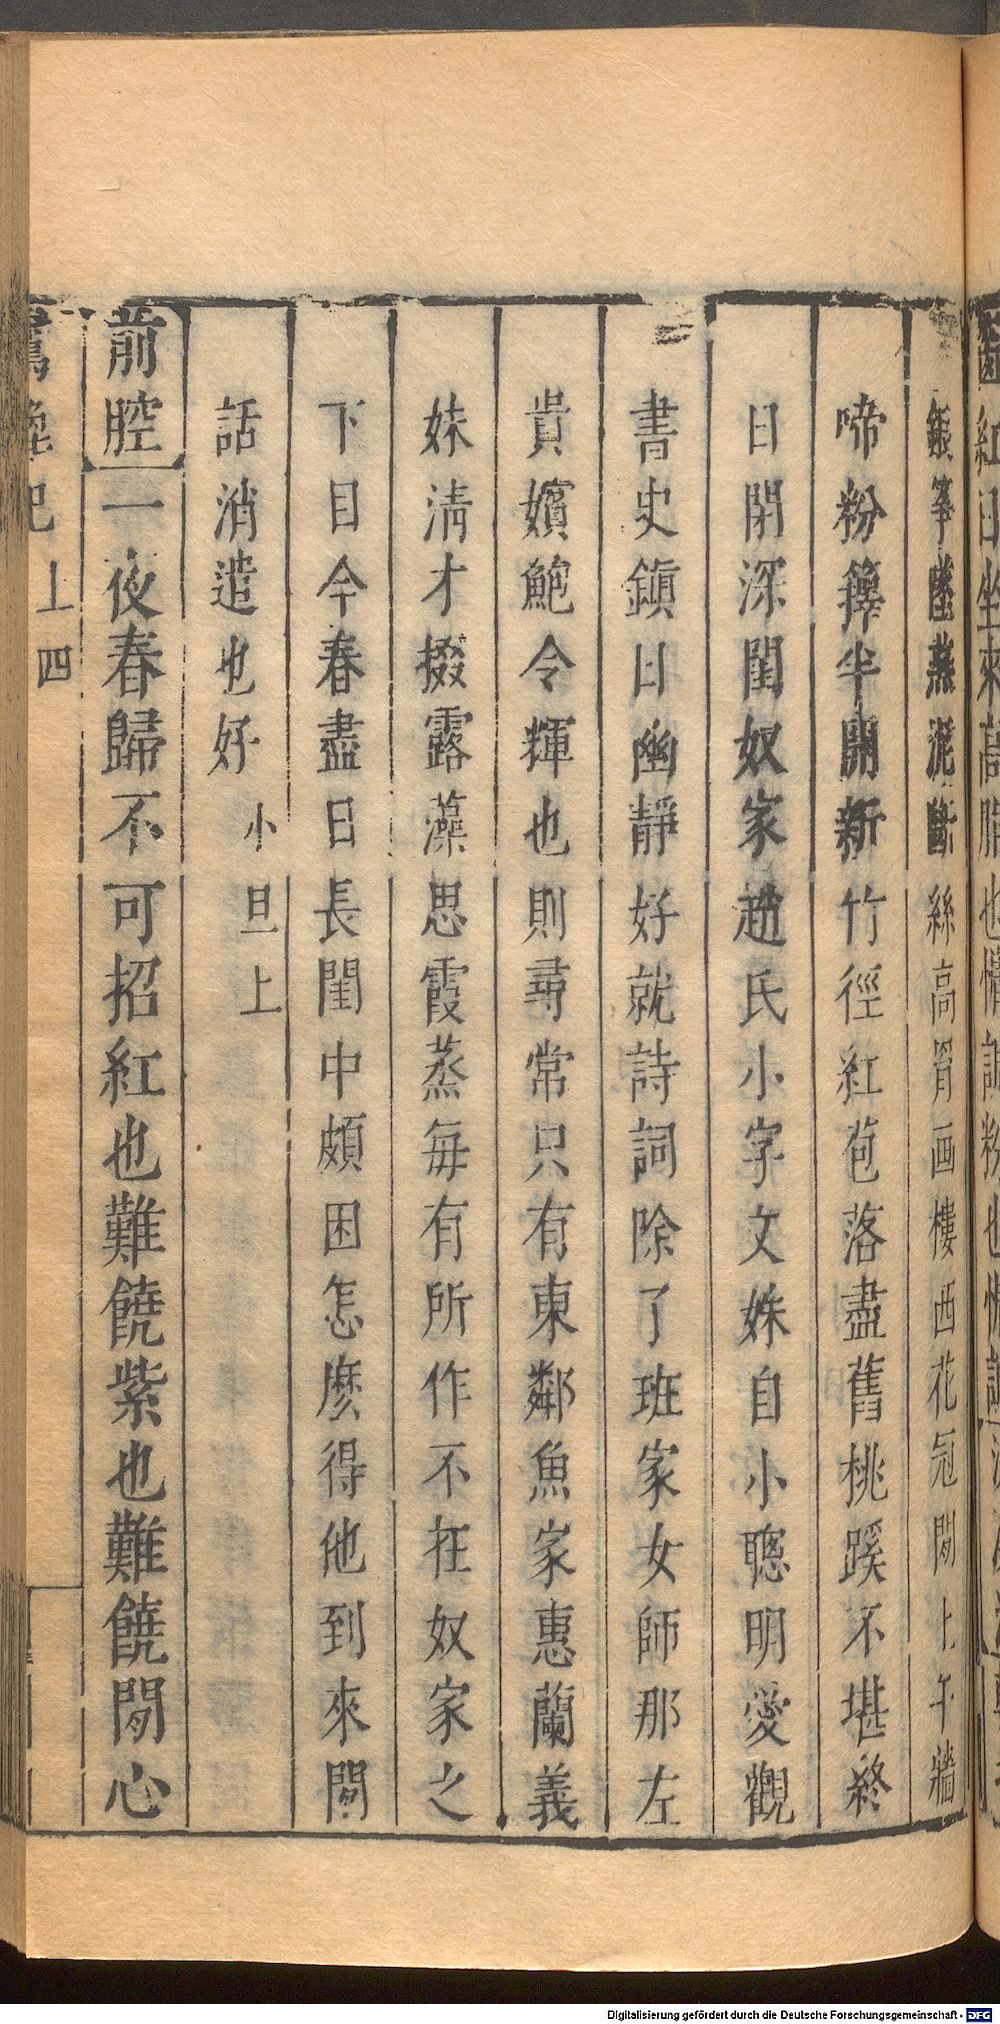 銀箏墜燕泥斷絲高罥画樓西花冠閒上午牆
啼粉籜半開新竹徑紅苞落盡舊桃蹊不堪終
日閉深閨奴家趙氏小字文姝自小聰明愛觀
書史鎮日幽靜好就詩詞除了班家女師那左
貴嬪鮑令輝也則尋常只有東鄰魚家惠蘭義
妹清才掇露藻思霞蒸每有所作不在奴家之
下目今春盡日長閨中頗困怎麽得他到來閒
話消遣也好小旦上
前腔一夜春歸不可招紅也難饒紫也難饒閒心
上四
Digitalisierung gefördert durch die Deutsche Forschungsgemeinschaft - DFG